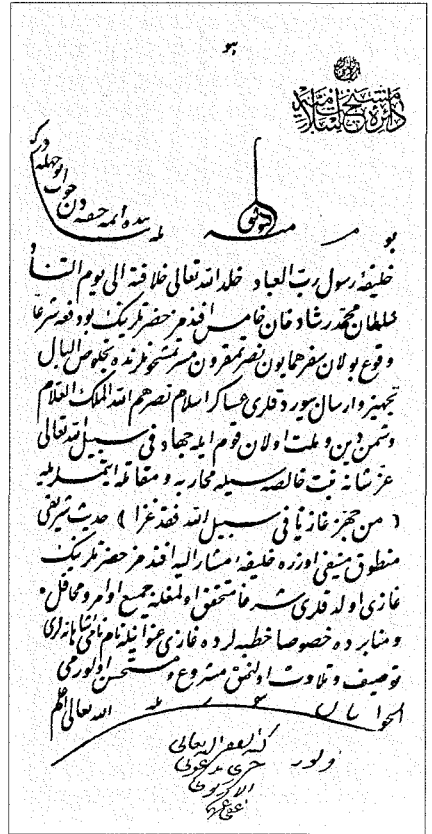 هو
دائرۀ مشیخت اسلامیه
التوفیق منه
بو مسئله ده ائمۀ حنفیه دن جواب بو وجهله در که
خلیفۀ رسول رب العباد خلد الله تعالی خلافته الی یوم التناد
سلطان محمد رشاد خان خامس افندمز حضرتلرینک بو دفعه شرعا
وقوع بولان سفر همایون نصرتمقرون بخلوص البال
تجهیز و ارسال بیوردقلری عساکر اسلام نصرهم الله الملک العلام
دشمن دین و ملت اولان قوم ایله جهاد فی سبیل الله تعالی
عز شانه نیت خالصه سیله محاربه و مقاتله ایتمه لریله
( من جهز غازیا فی سبیل الله فقد غزا ) حدیث شریفی
منطوق منیفی اوزره خلیفۀ مشار الیه افندمز حضرتلرینک
غازی اولدقلری شرعا متحقق اولمغله جمیع اوامر و محافل
و منابرده خصوصا خطبه لرده غازی عنوانیله نام نامئ شاهانه لری
توصیف و تلاوت اولنمق مشروع و مستحسن اولورمی
الجواب الله تعالی اعلم
اولور
کتبه الفقیر الیه تعالی
خیری بن عونی
الارکوبی
عفی عنهما